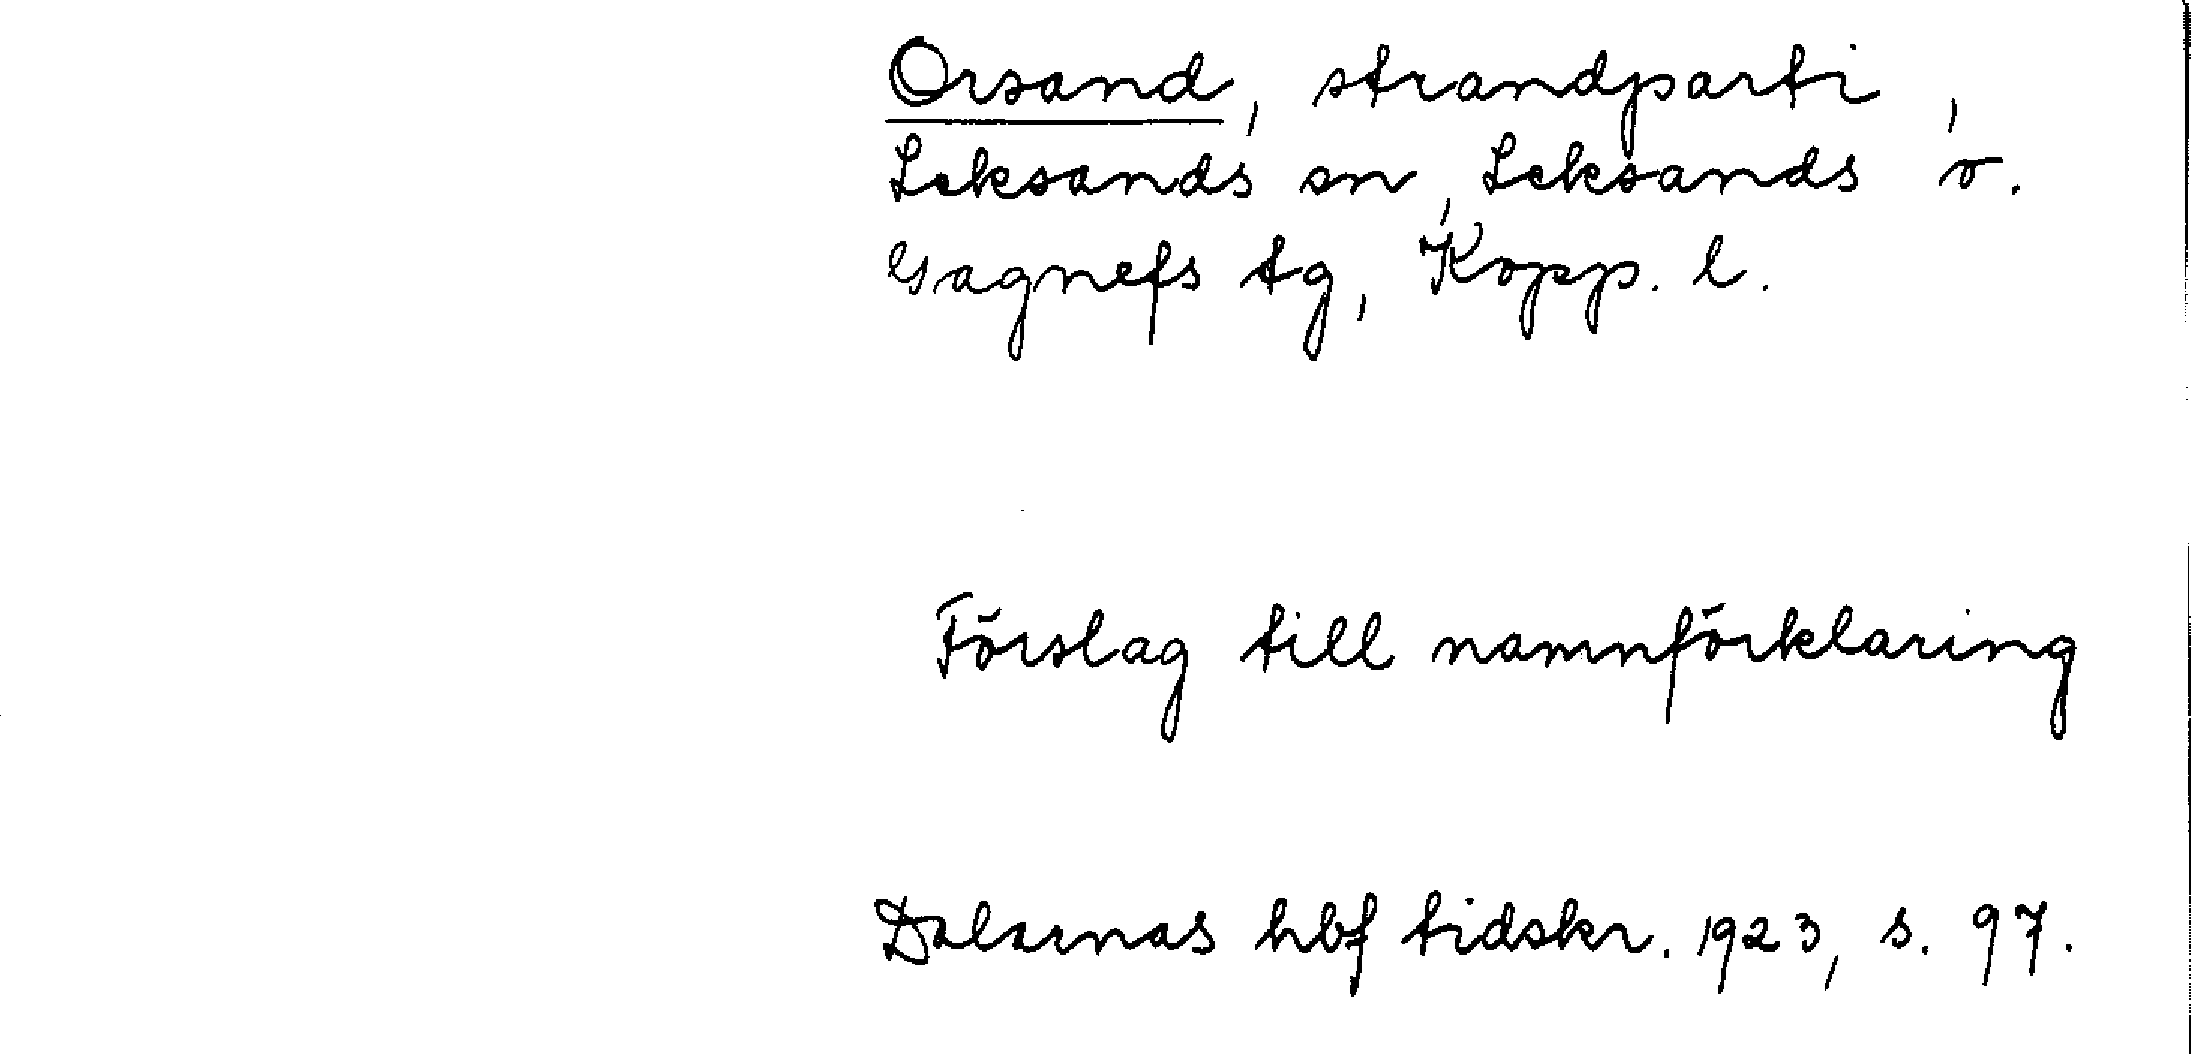 Orsand, strandparti,
Leksands sn, Leksands o.
Gagnefs tg, Kopp. l.
Förslag till namnförklaring
Dalarnas hbf tidskr. 1923, s. 97.